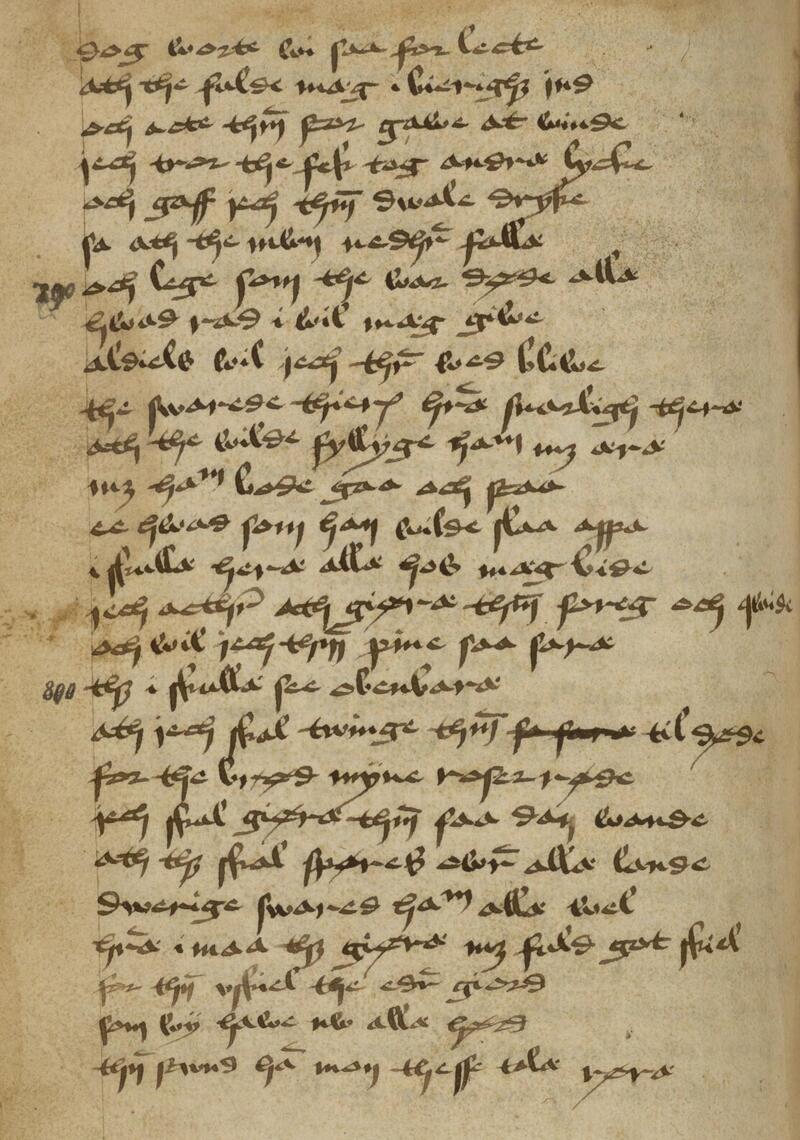 dog worte wi saa for lecte
ath the fulde mæg i bierigħꝫ jnd
och acte thm̅ stor gawe at winde
jech tror the fek tog andræ lycke
och gaff jech thm̅ dwale dryke
sa ath the mwn nedhr̅ fallæ
790 och lege som the war døde allæ
hwad rad i wil mæg giwe
aldiels wil jech thr̅ wed bliwe
the swarede thieꝝ hr̅æ snarligh theræ
ath the wilde fyllyge haᵐ mꝫ æræ
mꝫ haᵐ bode gaa och staa
ee hwad som han wilde slaa appa
i skullæ heræ allæ hos mæg bide
jech acthr̅ ath giøræ thm̅ soreg och qwide
och wil jech thm̅ pine saa saræ
800 thꝫ i skullæ see obenbaræ
ath jech skal twinge thm̅ til døde
for the brød myne roser røde
jech skal giøræ thm̅ saa dan wande
ath thꝫ skal spøres owr̅ allæ lande
dwerige swared haᵐ allæ wel
hr̅æ i maa thꝫ giøræ mꝫ fuld got skiel
for thn̅ vskiel the̅ edr̅ giord
som wy hawe nw allæ hørd
thn̅ stwnd ha̅ mon thesse talæ røræ